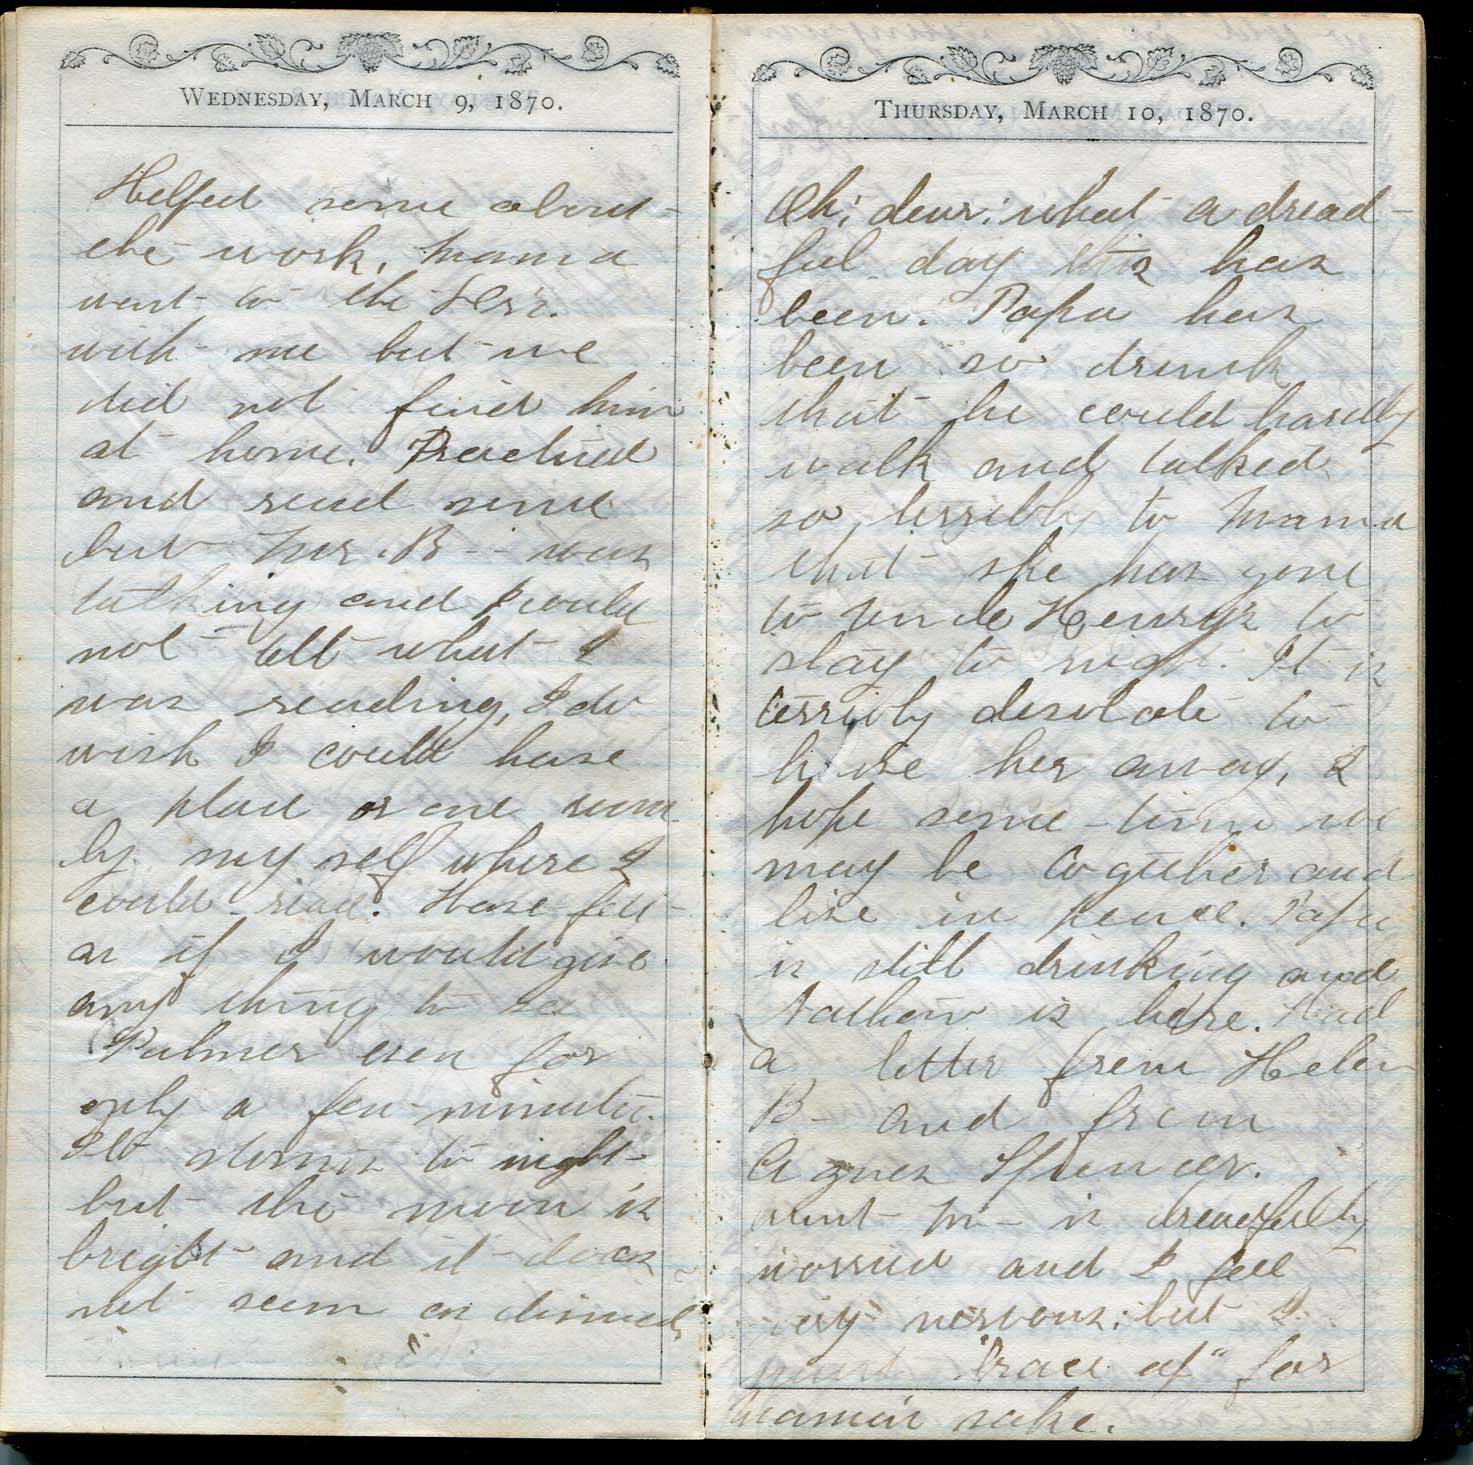 WEDNESDAY, MARCH 9, 1870.
Helped some about
the work. Mama
went to the Drs.
with me but we
did not find him
at home. Practiced
and read some
but Mr. B-- was
talking and I could
not tell what I
was reading, I do
wish I could have
a place or one room
by my self where I
could read. Have felt
as if I would give
any thing to see
Palmer even for
only a few minutes.
It storms to night
but the moon is
bright and it does
not seem as dismal,
THURSDAY, MARCH 10, 1870.
Oh; dear; what a dread-
ful day this has
been. Papa has
been so drunk
that he could hardly
walk and talked
so terribly to Mama
that she has gone
to Uncle Henry's to
stay to night. It is
terribly desolate to
have her away, I
hope some-time we
may be together and
live in peace. Papa
is still drinking and
Nathan is here. Had
a letter from Helen
B- and from
Agnes Spencer.
Aunt M- is dreadfully
worried and I feel
very nervous; but I
must "brace up" for
Mama's sake.